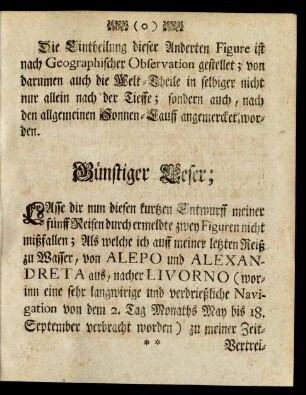 (o)
Die Eintheilung dieser Anderten Figure ist
nach Geographischer Observation gestellet; von
darumen auch die Welt-Theile in selbiger nicht
nur allein nach der Tieffe; sondern auch, nach
den allgemeinen Sonnen-Lauff angemercket wor-
den.
Günstiger Leser;
LAsse dir nun diesen kurtzen Entwurff meiner
fünff Reisen durch ermeldte zwey Figuren nicht
mißfallen; Als welche ich auff meiner letzten Reiß
zu Wasser, von ALEPO und ALEXAN-
DRETA aus, nacher LIVORNO (wor-
inn eine sehr langwirige und verdrießliche Navi-
gation von dem 2. Tag Monaths May bis 18.
September verbracht worden) zu meiner Zeit-
** Vertrei-